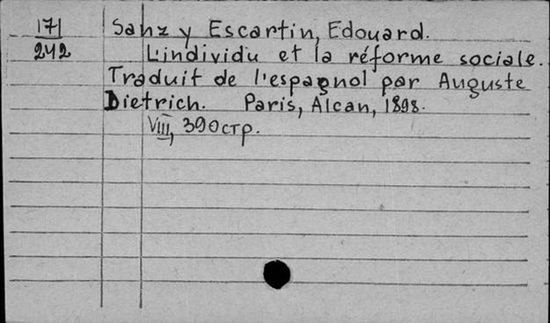 171
242
Sanz y Escartin, Edouard.
L'individu et la réforme sociale.
Traduit de l'espagnol par Auguste
Dietrich. Paris, Alcan, 1898.
VIII, 390стр.